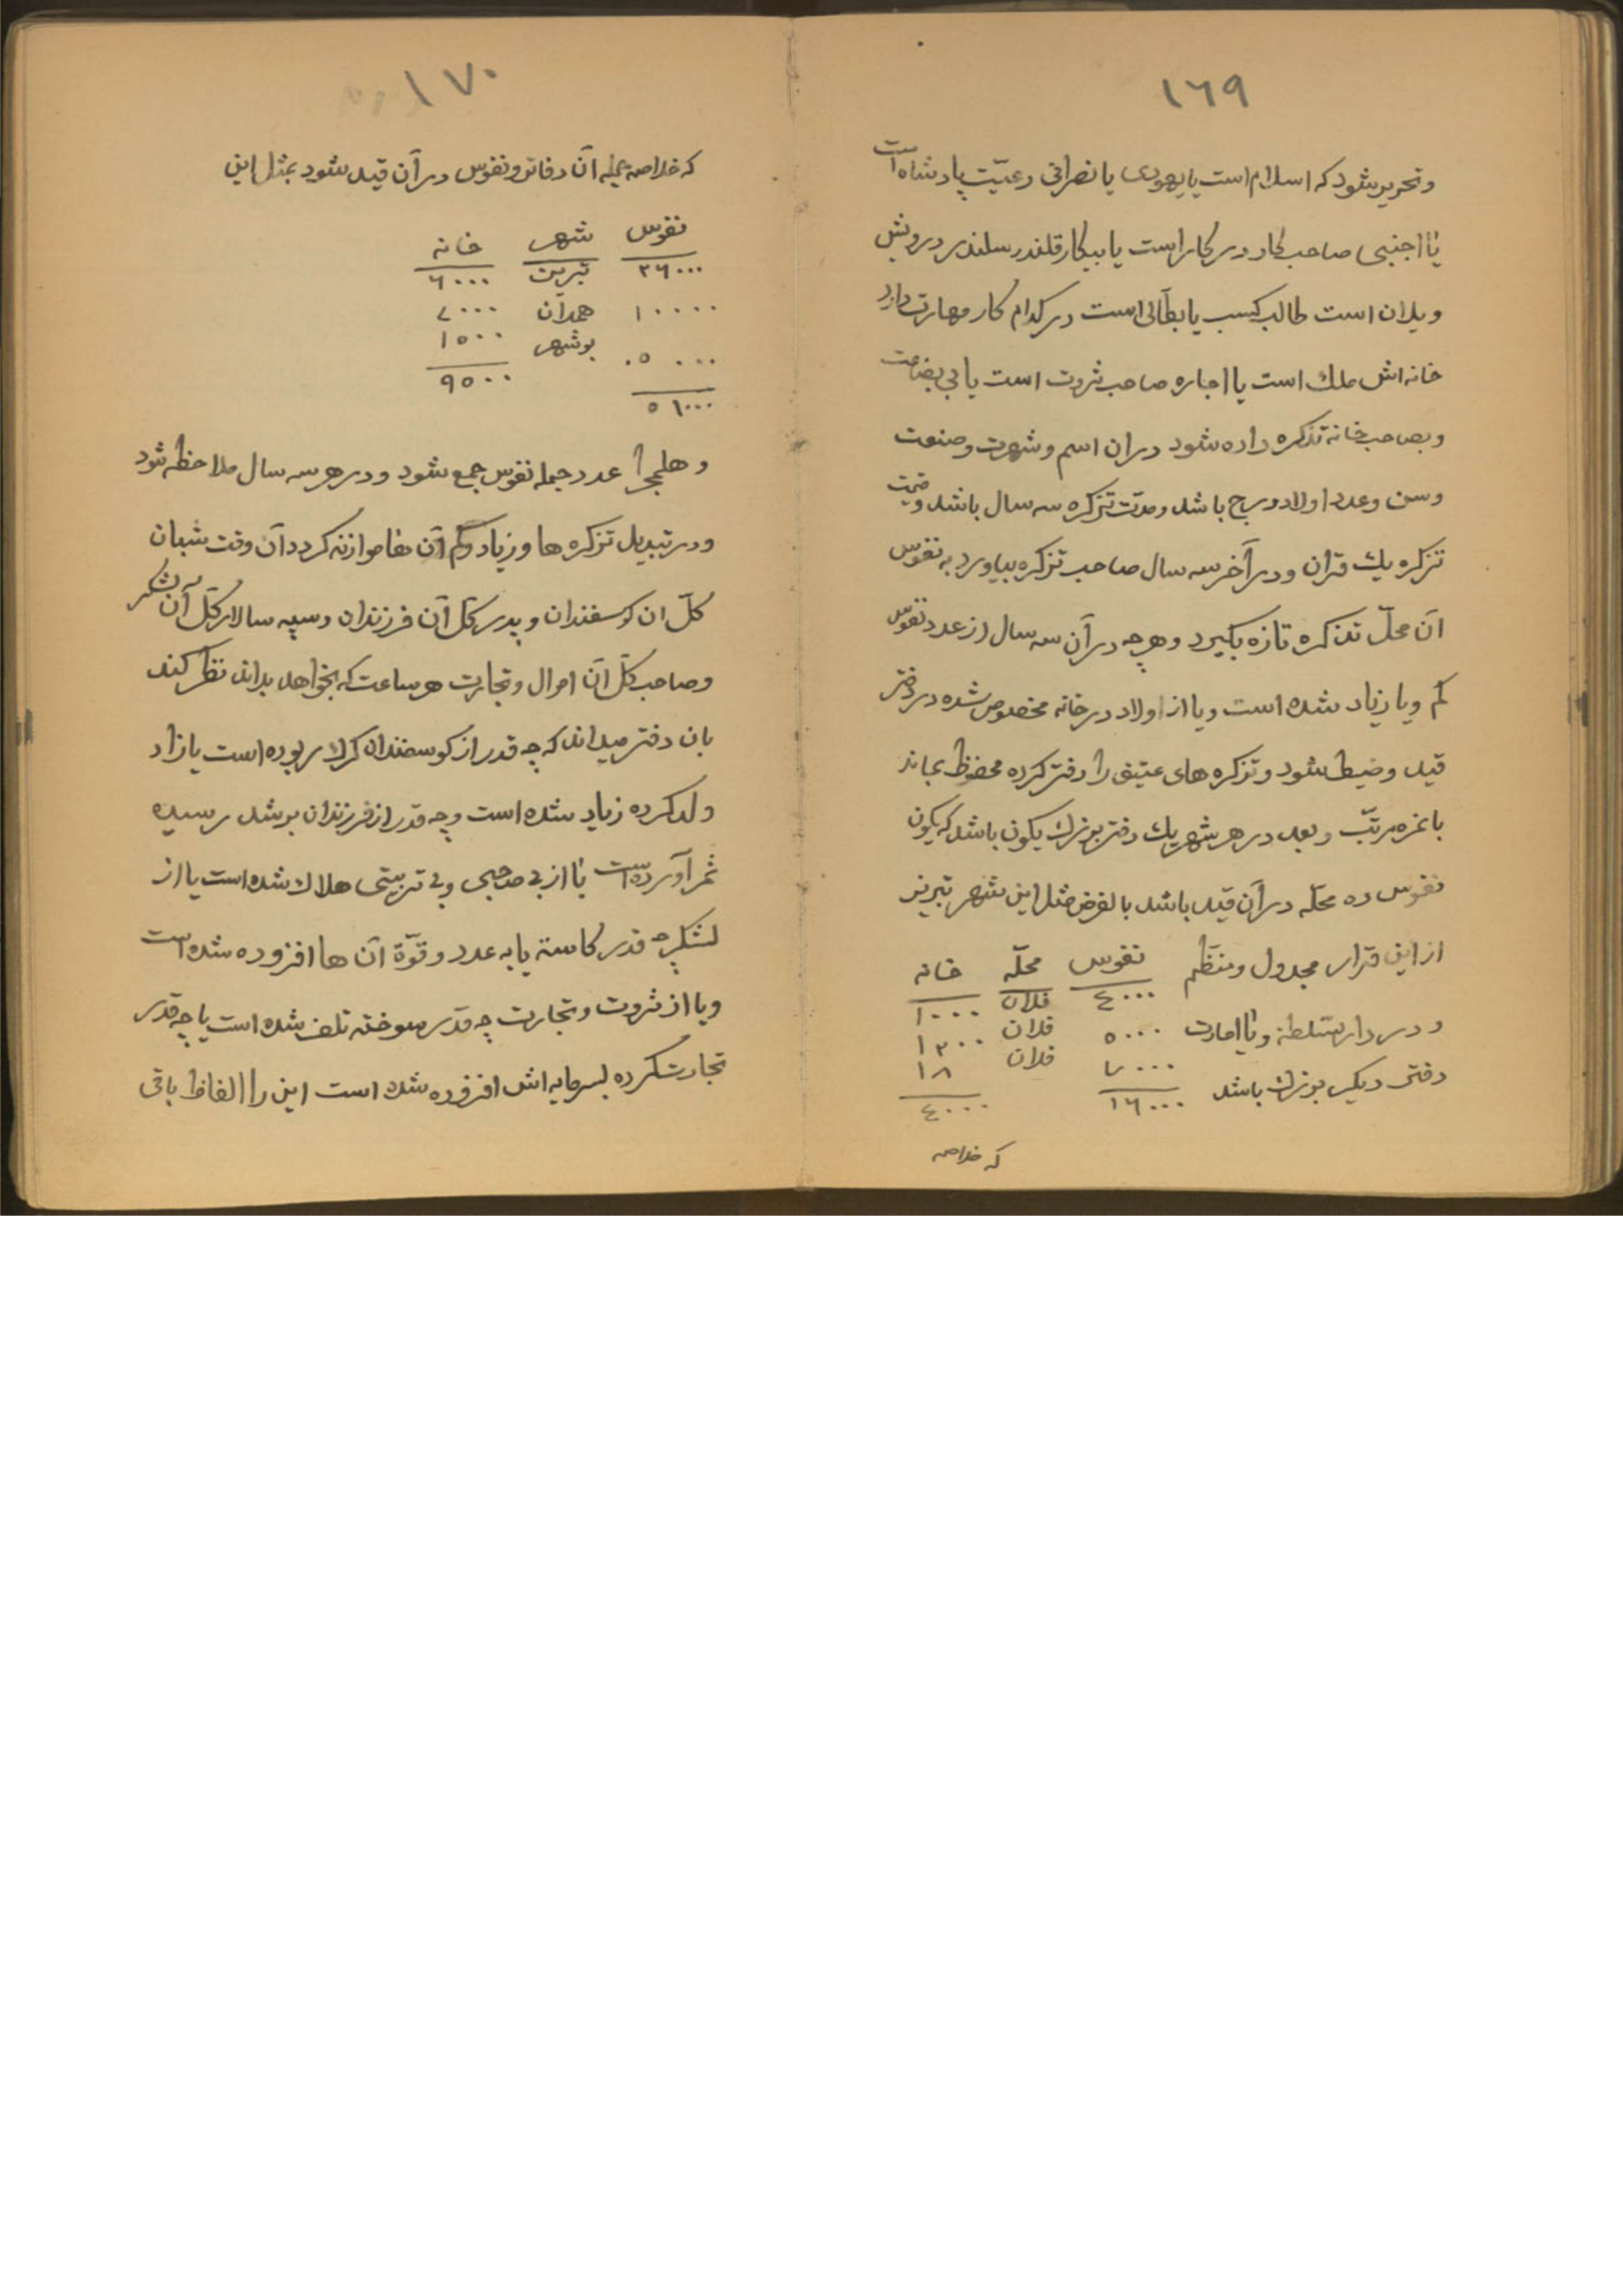 ١٦٩
وتحریر شود که اسلام است یا یهودی یا نصرانی رعیّت پادشاه است
یا اجنبی صاحب کار در کار است یا بیکار قلندر سلندر درویش
ویلان است طالب کسب یا بطّالی است در کدام کار مهارت دارد
خانه اش ملك است یا اجاره صاحب ثروت است یا بی بضاعت
وبصاحب خانه تذکره داده شود در ان اسم وشهرت وصنعت
وسن وعدد اولاد درج باشد ومدّت تزکره سه سال باشد وقیمت
تزکره یك قران ودر آخر سه سال صاحب تزکره بیاورد به نفوس
آن محلّ تذکره تازه بکیرد وهرچه در آن سه سال از عدد نفوس
کم ویا زیاد شده است ویا از اولاد در خانه مخصوص شده در دفتر
قید وضبط شود وتزکره های عتیق را دفتر کرده محفوظ بماند
با نمره مرتّب وبعد در هر شهر یك دفتر بوزرك یکون باشد که یکون
نفوس ده محلّه در آن قید باشد بالفرض مثل این شهر تبریز
از این قرار مجدول ومنظّم نفوس محلّه خانه
٤٠٠٠ فلان ١٠٠٠
ودر دار سّلطنه ویا امارت ٥٠٠٠ فلان ١٢٠٠
٧٠٠٠ فلان ١٨
دفتر دیکر بوزرك باشد ١٦٠٠٠ ٤٠٠٠
که خلاصه
١٧٠
که خلاصه جمله آن دفاتر ونفوس در آن قید شود بمثل این
نفوس شهر خانه
٣٦٠٠٠ تبریز ٦٠٠٠
١٠٠٠٠ همدان ٢٠٠٠
٥٠٠٠ بوشهر ١٥٠٠
٥١٠٠٠ ٩٥٠٠
وهلمجرا عدد جمله نفوس جمع شود ودر هر سه سال ملاحظه شود
ودر تبدیل تزکره ها وزیاد وکم آن ها موازنه کردد آن وقت شبان
کلّ ان کوسفندان وپدر کلّ آن فرزندان وسپه سالار کلّ آن لشکر
وصاحب کلّ آن اموال وتجارت هر ساعت که بخواهد بداند نظر کند
بان دفتر میداند که چه قدر از کوسفندان کرك ربوده است یا زاد
ولد کرده زیاد شده است وچه قدر از فرزندان برشد رسیده
ثمر آورده است یا از بی صاحبی وبی تربیتی هلاك شده است یا از
لشکر چه قدر کاسته یا به عدد وقوّة آن ها افزوده شده است
ویا از ثروت وتجارت چه قدر سوخته تلف شده است یا چه قدر
تجارت کرده بسرمایه اش افزوده شده است این را الفاظ باقی